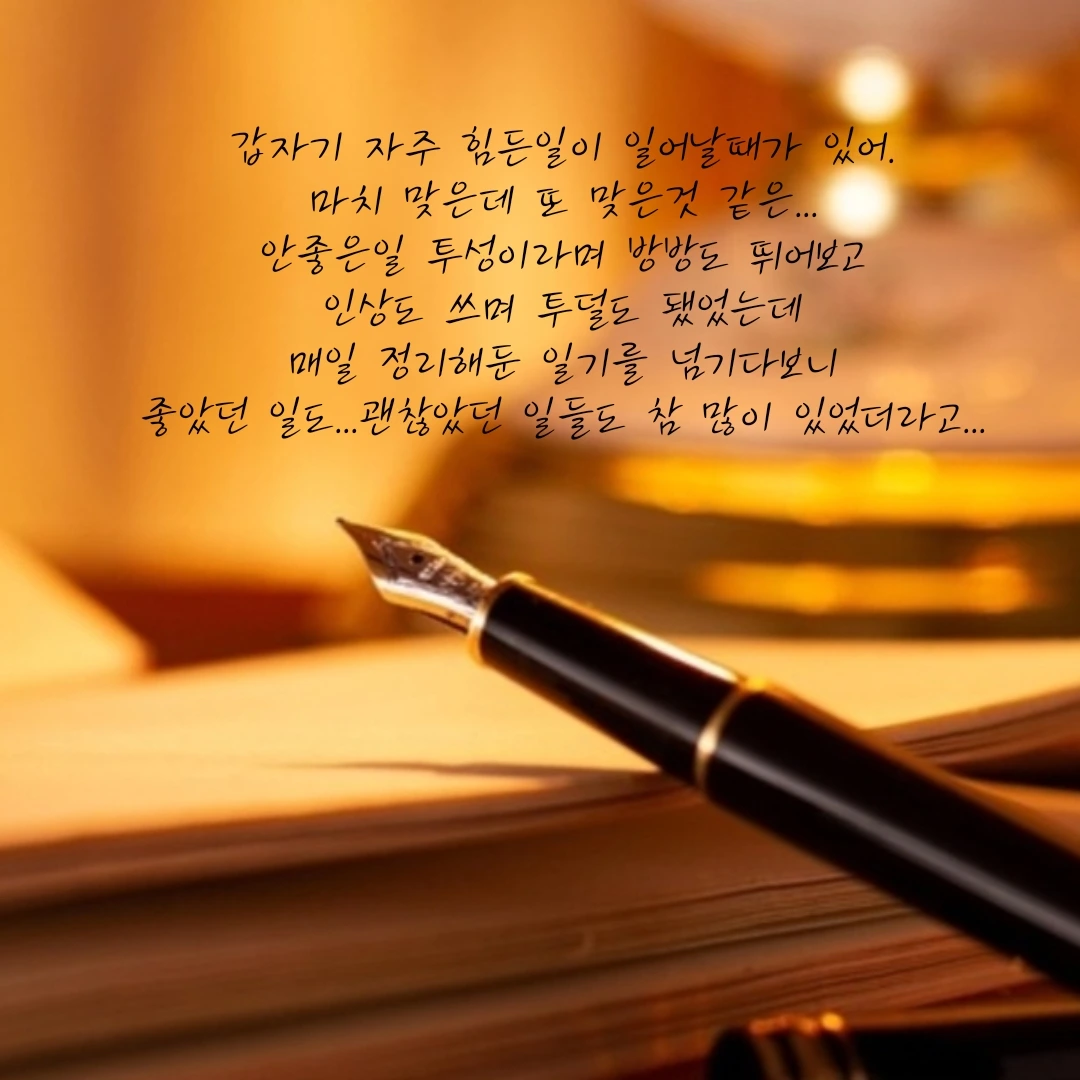 갑자기 자주 힘든일이 일어날때가 있어.
마치 맞은데 또 맞은것 같은...
안좋은일 투성이라며 방방도 뛰어보고
인상도 쓰며 투덜도 됐었는데
매일 정리해둔 일기를 넘기다보니
좋았던 일도...괜찮았던 일들도 참 많이 있었더라고...